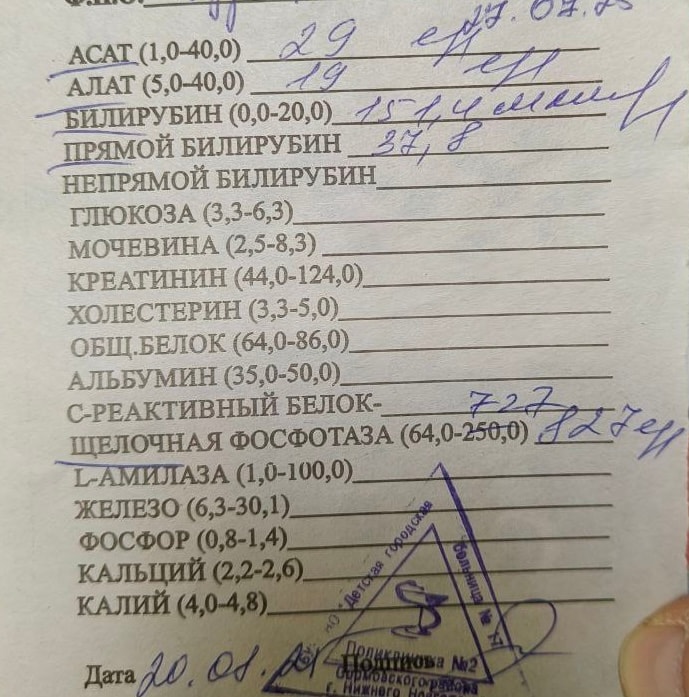 Ф.И.О. 27.07.
АСАТ (1,0-40,0) 29 ед
АЛАТ (5,0-40,0) 19 ед
БИЛИРУБИН (0,0-20,0) 151,4
ПРЯМОЙ БИЛИРУБИН 37,8
НЕПРЯМОЙ БИЛИРУБИН
ГЛЮКОЗА (3,3-6,3)
МОЧЕВИНА (2,5-8,3)
КРЕАТИНИН (44,0-124,0)
ХОЛЕСТЕРИН (3,3-5,0)
ОБЩ.БЕЛОК (64,0-86,0)
АЛЬБУМИН (35,0-50,0)
С-РЕАКТИВНЫЙ БЕЛОК- 727
ЩЕЛОЧНАЯ ФОСФОТАЗА (64,0-250,0) 827 ед
L-АМИЛАЗА (1,0-100,0)
ЖЕЛЕЗО (6,3-30,1)
ФОСФОР (0,8-1,4)
КАЛЬЦИЙ (2,2-2,6)
КАЛИЙ (4,0-4,8)
Дата 20.08.21 Подпись
Детская городская
больница №
Поликлиника №2
района
г. Нижнего